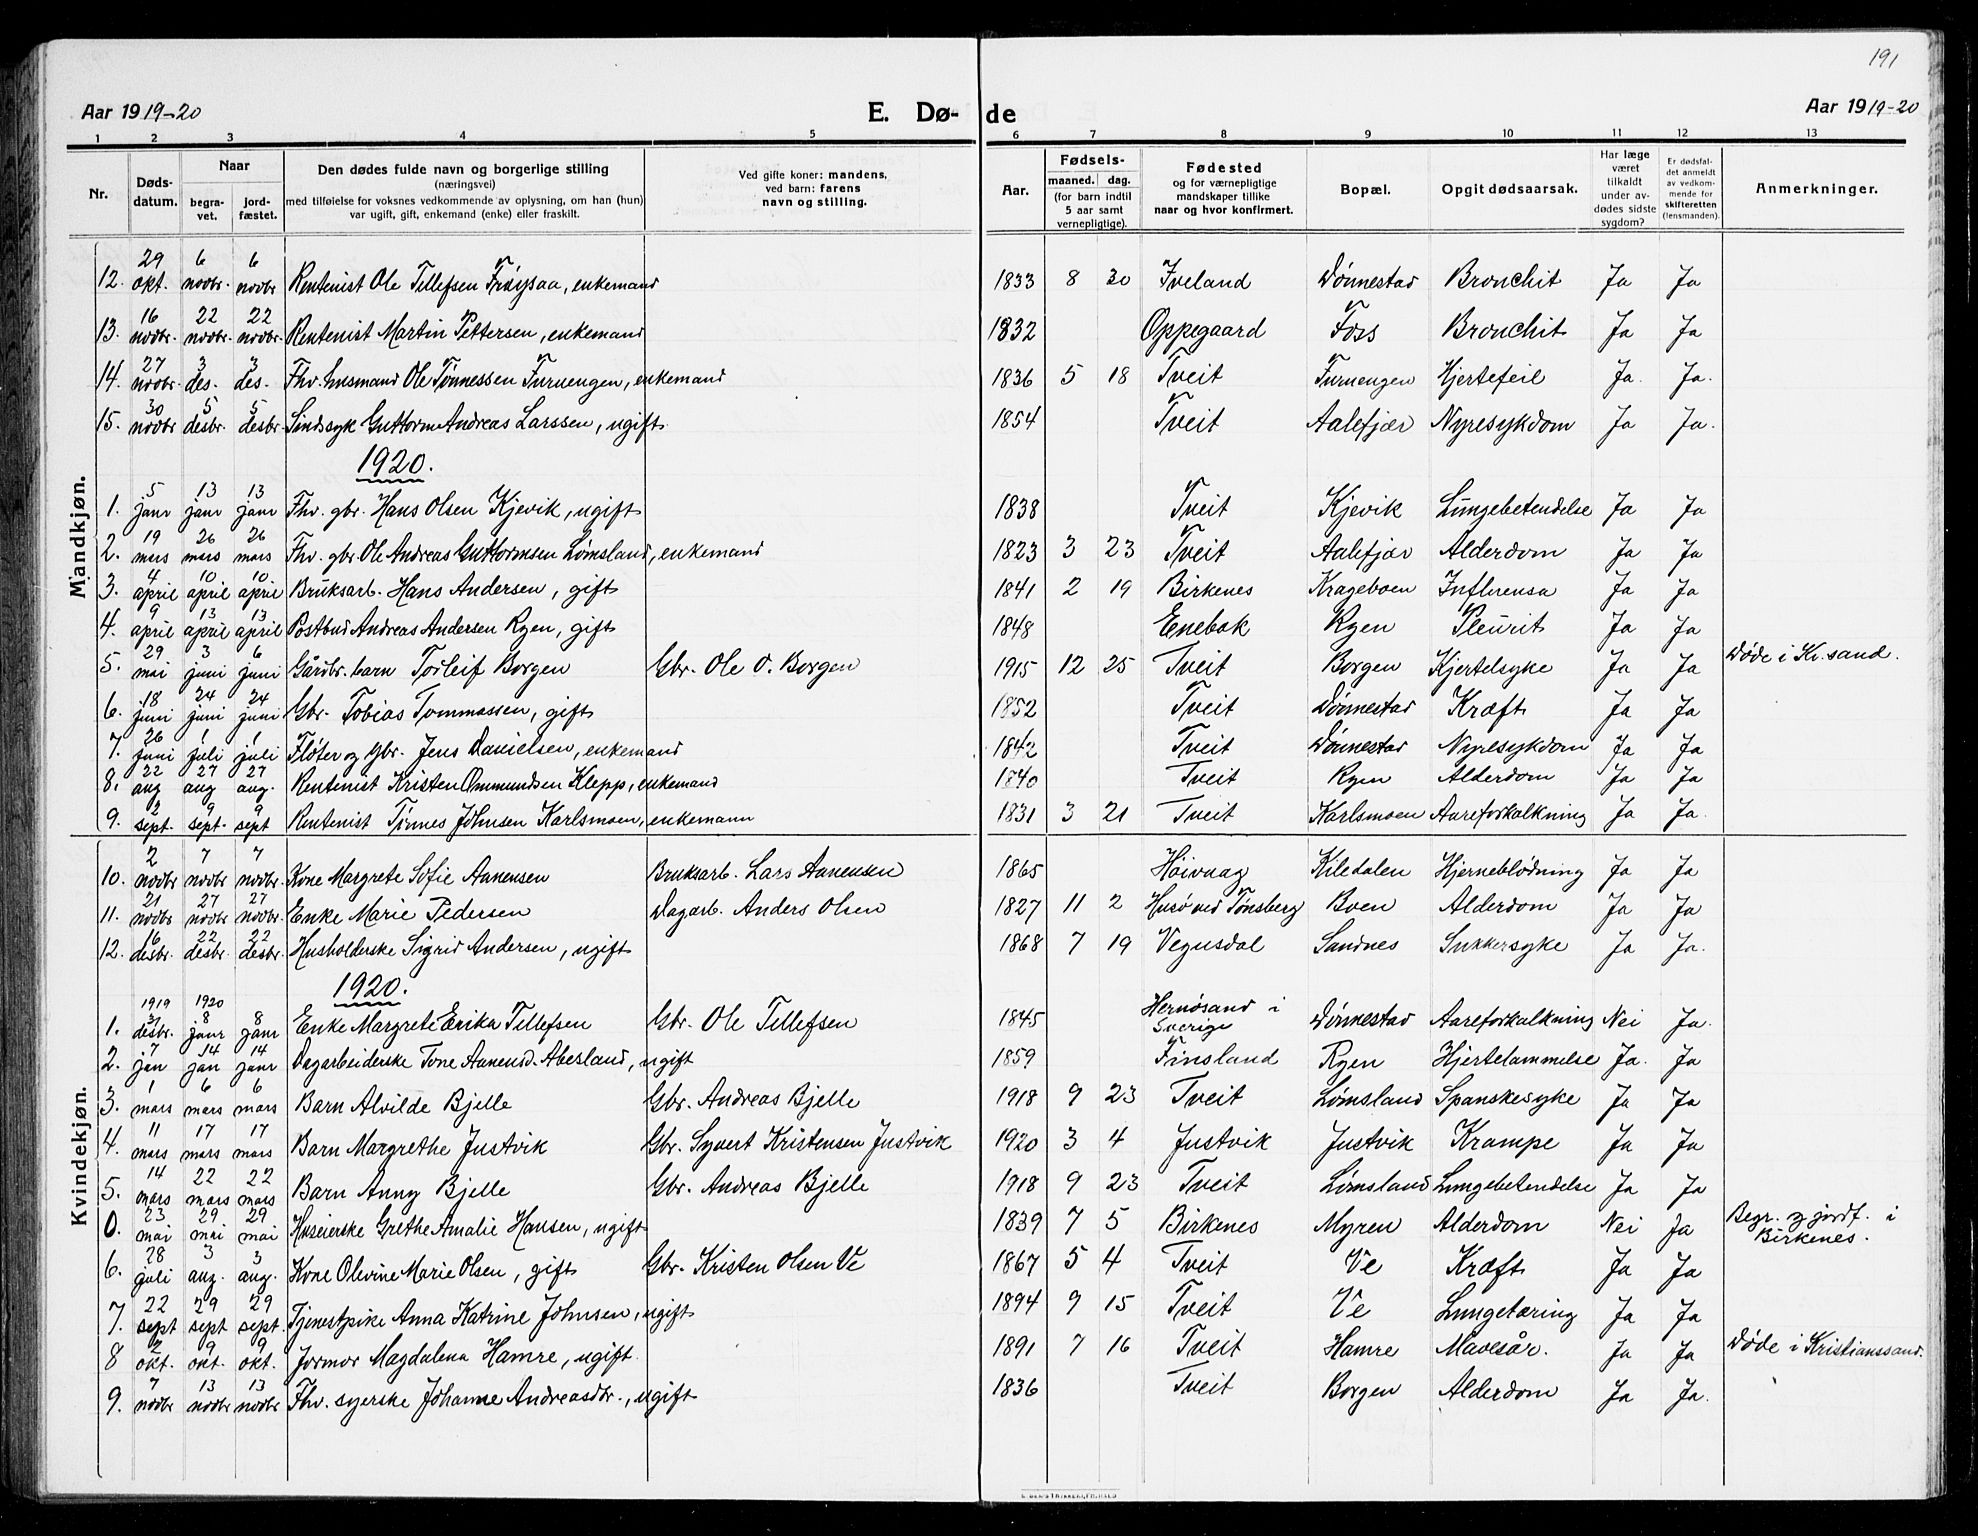 191
Aar 1919-20 E. Dø- de Aar 1919-20
1 2 3 4 5 6 7 8 9 10 11 12 13
Nr. Døds-datum. Naar begra-vet. jord-fæstet. Den dødes fulde navn og borgerlige stilling (næringsvei) med tilføielse for voksnes vedkommende av oplysning, om han (hun) var ugift, gift, enkemand (enke) eller fraskilt. Ved gifte koner: mandens, ved barn: farens navn og stilling. Aar. Fødsels- maaned. dag. (for barn indtil 5 aar samt vernepligtige). Fødested og for værnepligtige mandskaper tillike naar og hvor konfirmert. Bopæl. Opgit dødsaarsak. Har læge været tilkaldt under av-dødes sidste sygdom? Er dødsfal-det anmeldt av vedkom-mende for skifteretten (lensmanden). Anmerkninger.
Mandkjøn.
12. 29 okt. 6 novbr. 6 novbr Rentenist Ole Tellefsen Frøysaa, enkemand 1833 8 30 Iveland Dønnestad Bronchit Ja Ja
13. 16 novbr. 22 novbr. 22 novbr. Rentenist Martin Pettersen, enkemand 1832 Oppegaard Foss Bronchit Ja Ja
14. 27 novbr. 3 des. 3 des. Fhv. husmand Ole Tønnessen Furuengen, enkemand 1836 5 18 Tveit Furuengen Hjertefeil Ja. Ja.
15. 30 novbr 5 desbr. 5 desbr. Sindssyk Guttorm Andreas Larssen, ugift 1854 Tveit Aalefjær Nyresykdom Ja Ja.
1920.
1. 5 janr 13 janr 13 janr Fhv. gbr. Hans Olsen Kjevik, ugift 1838 Tveit Kjevik Lungebetendelse Ja Ja
2. 19 mars 26 mars 26 mars Fhv. gbr. Ole Andreas Guttormsen Lømsland, enkemand 1823 3 23 Tveit Aalefjær Alderdom Ja Ja
3. 4 april 10 april 10 april Bruksarb. Hans Andersen, gift 1841 2 19 Birkenes Krageboen Influensa Ja Ja
4. 9 april 13 april 13 april Postbud Andreas Andersen Ryen, gift 1848 Enebak Ryen Pleurit Ja Ja
5. 29 mai 3 juni 6 juni Gårdbr. barn Torleif Borgen Gbr. Ole O. Borgen 1915 12 25 Tveit Borgen Kjertelsyke Ja Ja Døde i Kr.sand.
6. 18 juni 24 juni 24 juni Gbr. Tobias Tommassen, gift 1852 Tveit Dønnestad Kræft Ja Ja
7. 26 juni 1 juli 1 juli Fløter og Gbr. Jens Danielsen, enkemand 1842 Tveit Dønnestad Nyresykdom Ja Ja
8. 22 aug 27 aug 27 aug. Rentenist Kristen Ommundsen Klepp, enkemand 1840 Tveit Ryen Alderdom Ja Ja
9. 2 sept. 9 sept. 9 sept Rentenist Tønnes Johnsen Karlsmoen, enkemann 1831 3 21 Tveit Karlsmoen Aareforkalkning Ja Ja.
Kvindekjøn.
10. 2 novbr 7 novbr 7 novbr. Kone Margrete Sofie Aanensen Bruksarb. Lars Aanensen 1865 Høivaag Kiledalen Hjerneblødning Ja Ja
11. 21 novbr 27 novbr. 27 novbr. Enke Marie Pedersen Dagarb. Anders Olsen 1827 11 2 Husø ved Tønsberg Boen Alderdom Ja Ja
12. 16 desbr. 22 desbr. 22 desbr. Husholderske Sigrid Andersen, ugift 1868 7 19 Vegusdal Sandnes Sukkersyke Ja Ja.
1920.
1. 1919 31 desbr. 1920 8 janr 8 janr Enke Margrete Erika Tellefsen Gbr. Ole Tellefsen 1845 Hernøsand i Sverige Dønnestad Aareforkalkning Nei Ja.
2. 7 jan 14 jan 14 janr Dagarbeiderske Tone Aanensd. Abesland, ugift 1859 Finsland Ryen Hjertelammelse Ja. Ja
3. 1 mars 6 mars 6 mars Barn Alvilde Bjelle Gbr. Andreas Bjelle 1918 9 23 Tveit Lømsland Spanskesyke Ja Ja
4. 11 mars 17 mars 17 mars Barn Margrethe Justvik Gbr. Syvert Kristensen Justvik 1920 3 4 Justvik Justvik Krampe Ja Ja
5. 14 mars 22 mars 22 mars Barn Anny Bjelle Gbr. Andreas Bjelle 1918 9 23 Tveit Lømsland Lungebetendelse Ja Ja
0. 23 mai 29 mai 29 mai Huseierske Grethe Amalie Hansen, ugift 1839 7 5 Birkenes Myren Alderdom Nei Ja Begr. og jordf. i Birkenes.
6. 28 juli 3 aug. 3 aug. Kone Olevine Marie Olsen, gift Gbr. Kristen Olsen Ve 1867 5 4 Tveit Ve Kræft Ja Ja
7. 22 sept 29 sept 29 sept. Tjenestpike Anna Katrine Johnsen, ugift 1894 9 15 Tveit Ve Lungetæring Ja Ja
8 2 okt. 9 okt. 9 okt. Jormor Magdalena Hamre, ugift. 1891 7 16 Tveit Hamre Mavesår. Ja Ja Døde i Kristianssand.
9. 7 novbr 13 novbr 13 novbr Fhv. syerske Johanne Andreasdtr., ugift 1836 Tveit Borgen Alderdom Ja Ja.